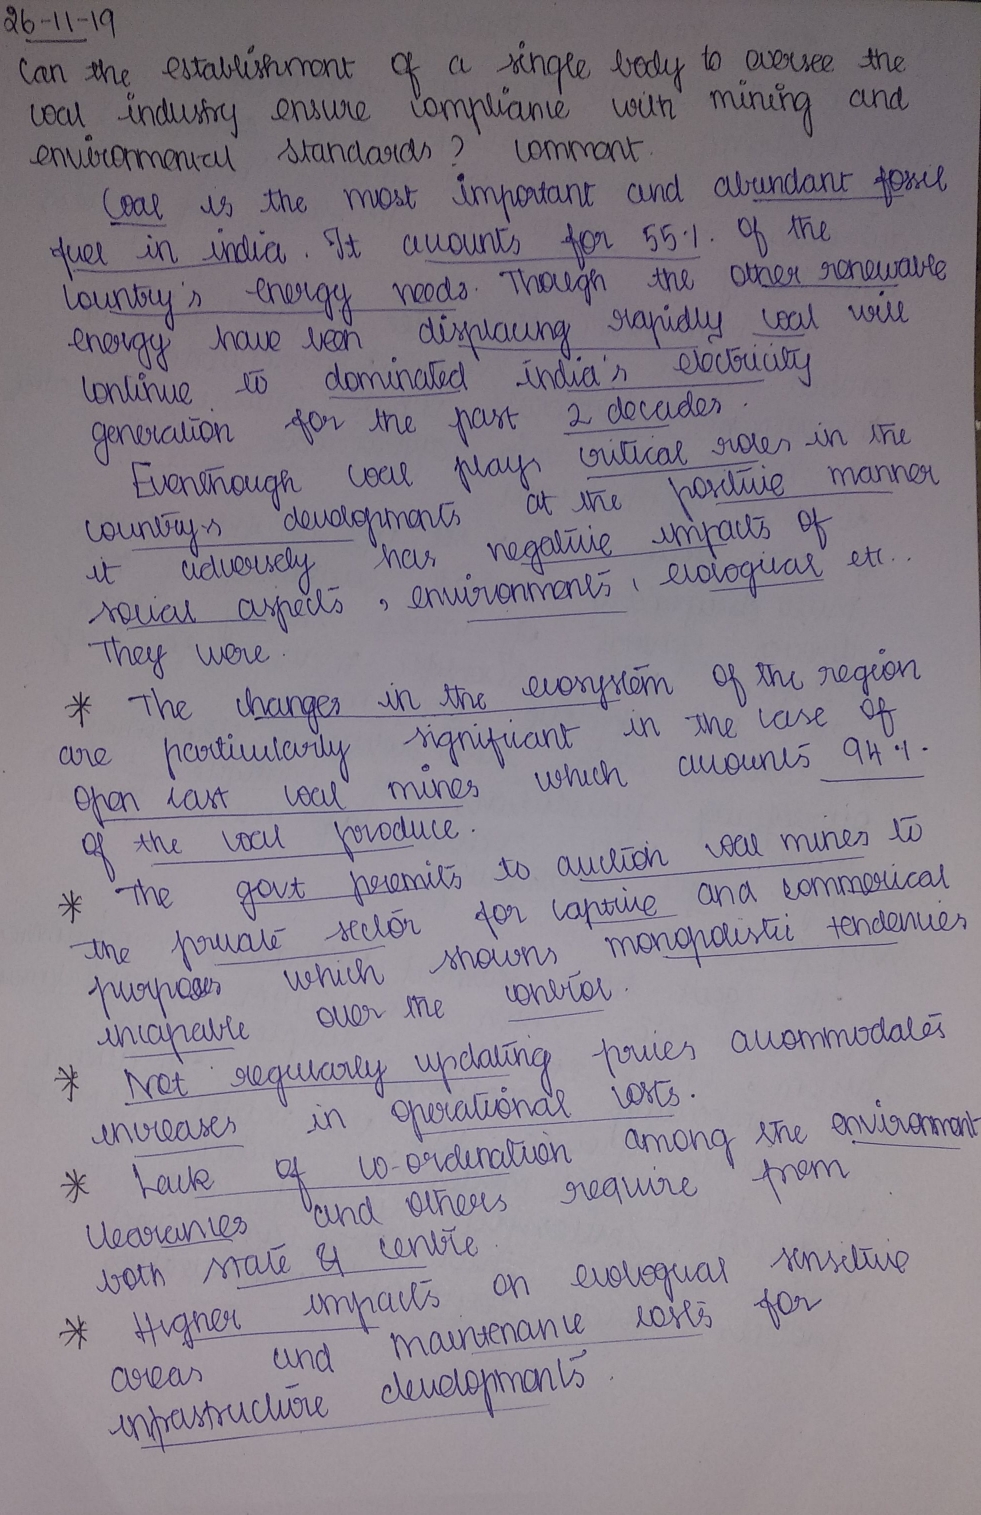 26-11-19
Can the establishment of a single body to oversee the
coal industry ensure compliance with mining and
environmental standards? Comment.
Coal is the most important and abundant fossil
fuel in india. It accounts for 55%. of the
country's energy needs. Though the other renewable
energy have been displacing rapidly coal will
continue to dominated india's electricity
generation for the past 2 decades.
Eventhough coal plays critical roles in the
country's developments at the positive manner
it adversely has negative impacts of
social aspects, environments, ecological etc..
They were.
* The changes in the ecosystem of the region
are particularly significant in the case of
open cast coal mines which accounts 94%.
of the coal produce.
* The govt permits to auction coal mines to
the private sector for captive and commerical
purposes which showns monopolistic tendencies
incapable over the control.
* Not regularly updating prices accommodates
increases in operational costs.
* Lack of co-ordination among the environment
clearances and others require from
both state & centre.
* Higher impacts on ecological sensitive
areas and maintenance costs for
infrastructure developments.